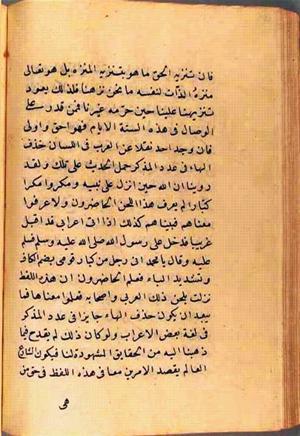 فان تنزيه الحق ما هو بتنزيه المنزه بل هو تعالى
منزه الذات لنفسه ما نحن نزهنا فلذلك يعود
تنزيهنا علينا حين حرمه غيرنا فمن قدر على
الوصال في هذه الستة الايام فهو احق واولى
فان وجد احد نقلا عن العرب في اللسان حذف
الهاء في عدد المذكر حمل الحديث على تلك ولقد
روينا ان الله حين انزل على نبيه ومكروا مكرا
كبارا لم يعرف هذا اللحن الحاضرون ولا عرفوا
معناه فبينا هم كذلك اذا اتى اعرابي قد اقبل
غريبا فدخل على رسول الله صلى الله عليه وسلم فسلم
عليه وقال يا محمد انى رجل من كبار قومى بضم الكاف
وتشديد الباء فعلم الحاضرون ان هذه اللفظ
نزلت بلحن ذلك العربي واصحابه فعلموا معناها فما
يبعد ان يكون حذف الهاء جايزا في عدد المذكر
في لغة بعض الاعراب ولو كان ذلك لم يقدح فيما
ذهبنا اليه من الحقايق المشهودة لنا فيكون الشارع
العالم يقصد الامرين معا في هذه اللفظ في حق من
هى